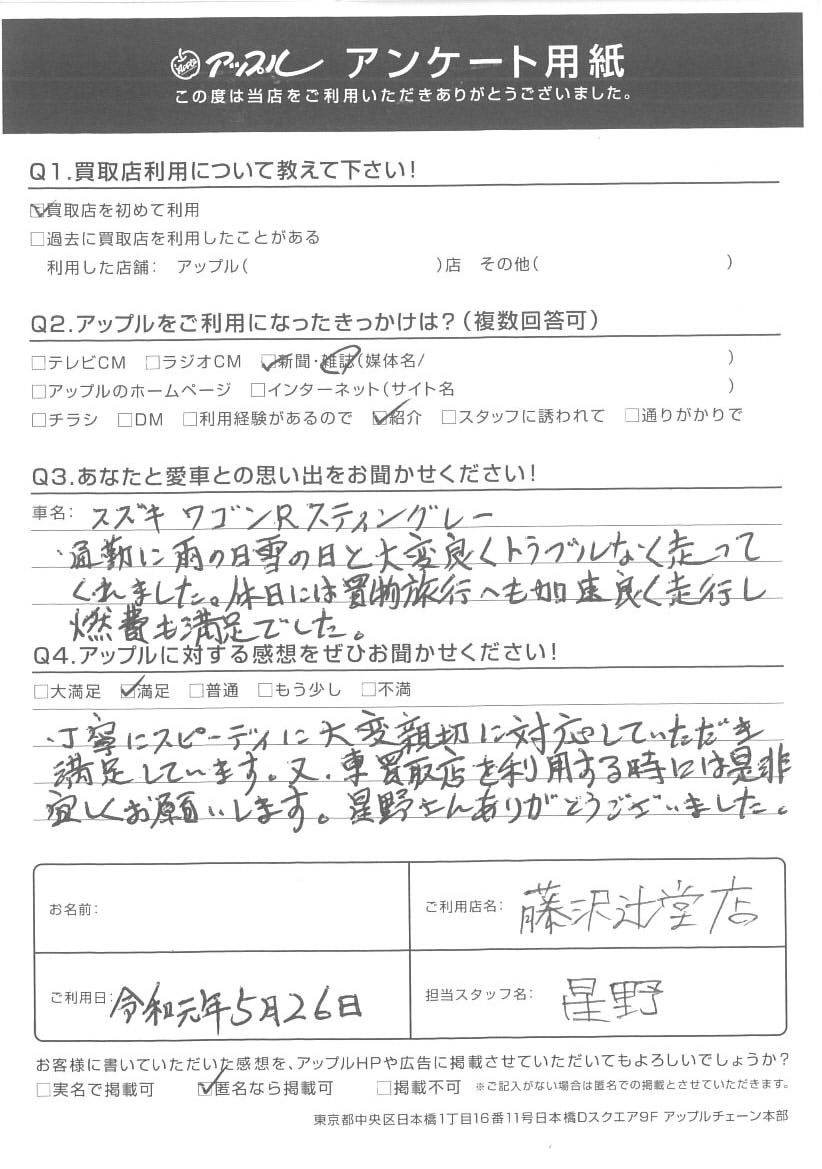 アップル アンケート用紙
この度は当店をご利用いただきありがとうございました。
Q1.買取店利用について教えて下さい!
☑買取店を初めて利用
□過去に買取店を利用したことがある
利用した店舗: アップル( )店 その他( )
Q2.アップルをご利用になったきっかけは?(複数回答可)
□テレビCM □ラジオCM ☑新聞・雑誌(媒体名/ )
□アップルのホームページ □インターネット(サイト名 )
□チラシ □DM □利用経験があるので ☑紹介 □スタッフに誘われて □通りがかりで
Q3.あなたと愛車との思い出をお聞かせください!
車名: スズキ ワゴンRスティングレー
・通勤に雨の日雪の日と大変良くトラブルなく走って
くれました。休日には買物旅行へも加速良く走行し
燃費も満足でした。
Q4.アップルに対する感想をぜひお聞かせください!
□大満足 ☑満足 □普通 □もう少し □不満
・丁寧にスピーディに大変親切に対応していただき
満足しています。又、車買取店を利用する時には是非
宜しくお願いします。星野さんありがとうございました。
お名前:
ご利用店名: 藤沢辻堂店
ご利用日: 令和元年5月26日
担当スタッフ名: 星野
お客様に書いていただいた感想を、アップルHPや広告に掲載させていただいてもよろしいでしょうか?
□実名で掲載可 ☑匿名なら掲載可 □掲載不可 ※ご記入がない場合は匿名での掲載とさせていただきます。
東京都中央区日本橋1丁目16番11号日本橋Dスクエア9F アップルチェーン本部